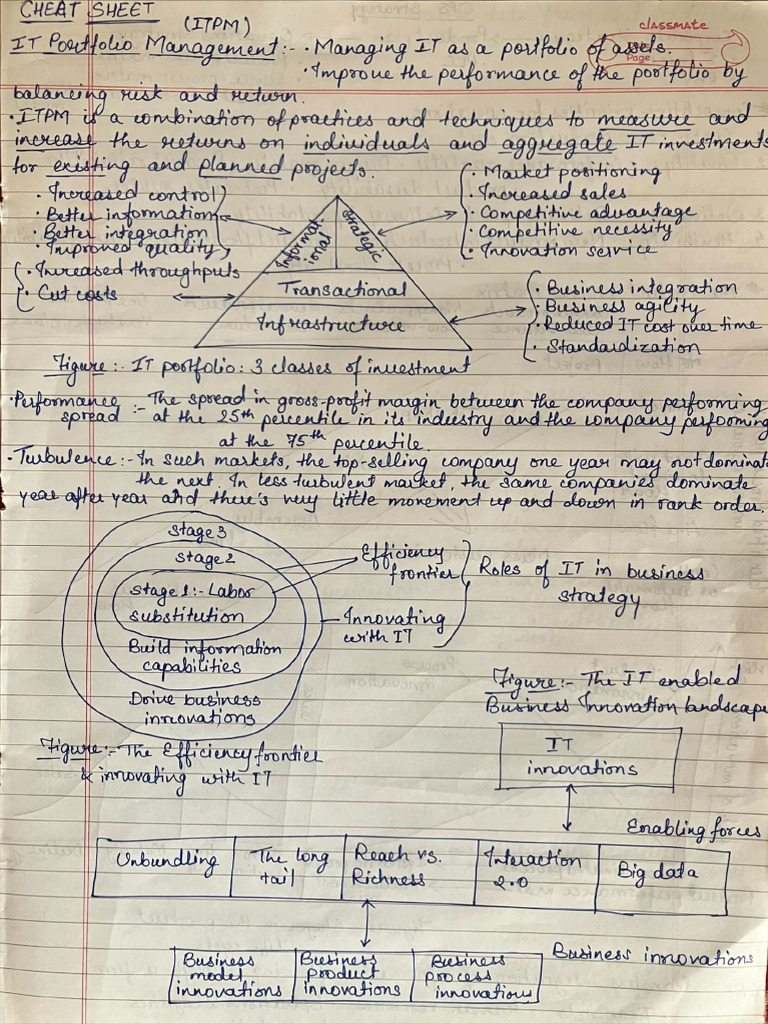 CHEAT SHEET
(ITPM)
classmate
Page
IT Portfolio Management:- • Managing IT as a portfolio of assets.
• Improve the performance of the portfolio by
balancing risk and return.
• ITPM is a combination of practices and techniques to measure and
increase the returns on individuals and aggregate IT investments
for existing and planned projects.
• Increased control
• Better information
• Better integration
• Improved quality
• Increased throughputs
• Cut costs
Informat-
ional
Strategic
Transactional
Infrastructure
• Market positioning
• Increased sales
• Competitive advantage
• Competitive necessity
• Innovation service
• Business integration
• Business agility
• Reduced IT cost over time
• Standardization
Figure:- IT portfolio: 3 classes of investment
• Performance spread :- The spread in gross-profit margin between the company performing
at the 25th percentile in its industry and the company performing
at the 75th percentile.
• Turbulence:- In such markets, the top-selling company one year may not dominate
the next. In less turbulent market, the same companies dominate
year after year and there's very little movement up and down in rank order.
Stage 3
Stage 2
Stage 1:- Labor
substitution
Build information
capabilities
Drive business
innovations
Efficiency
frontier
Innovating
with IT
Roles of IT in business
strategy
Figure:- The Efficiency frontier
& innovating with IT
Figure:- The IT enabled
Business Innovation landscape
IT
innovations
Enabling forces
Unbundling
The long
tail
Reach vs.
Richness
Interaction
2.0
Big data
Business
model
innovations
Business
product
innovations
Business
process
innovations
Business innovations